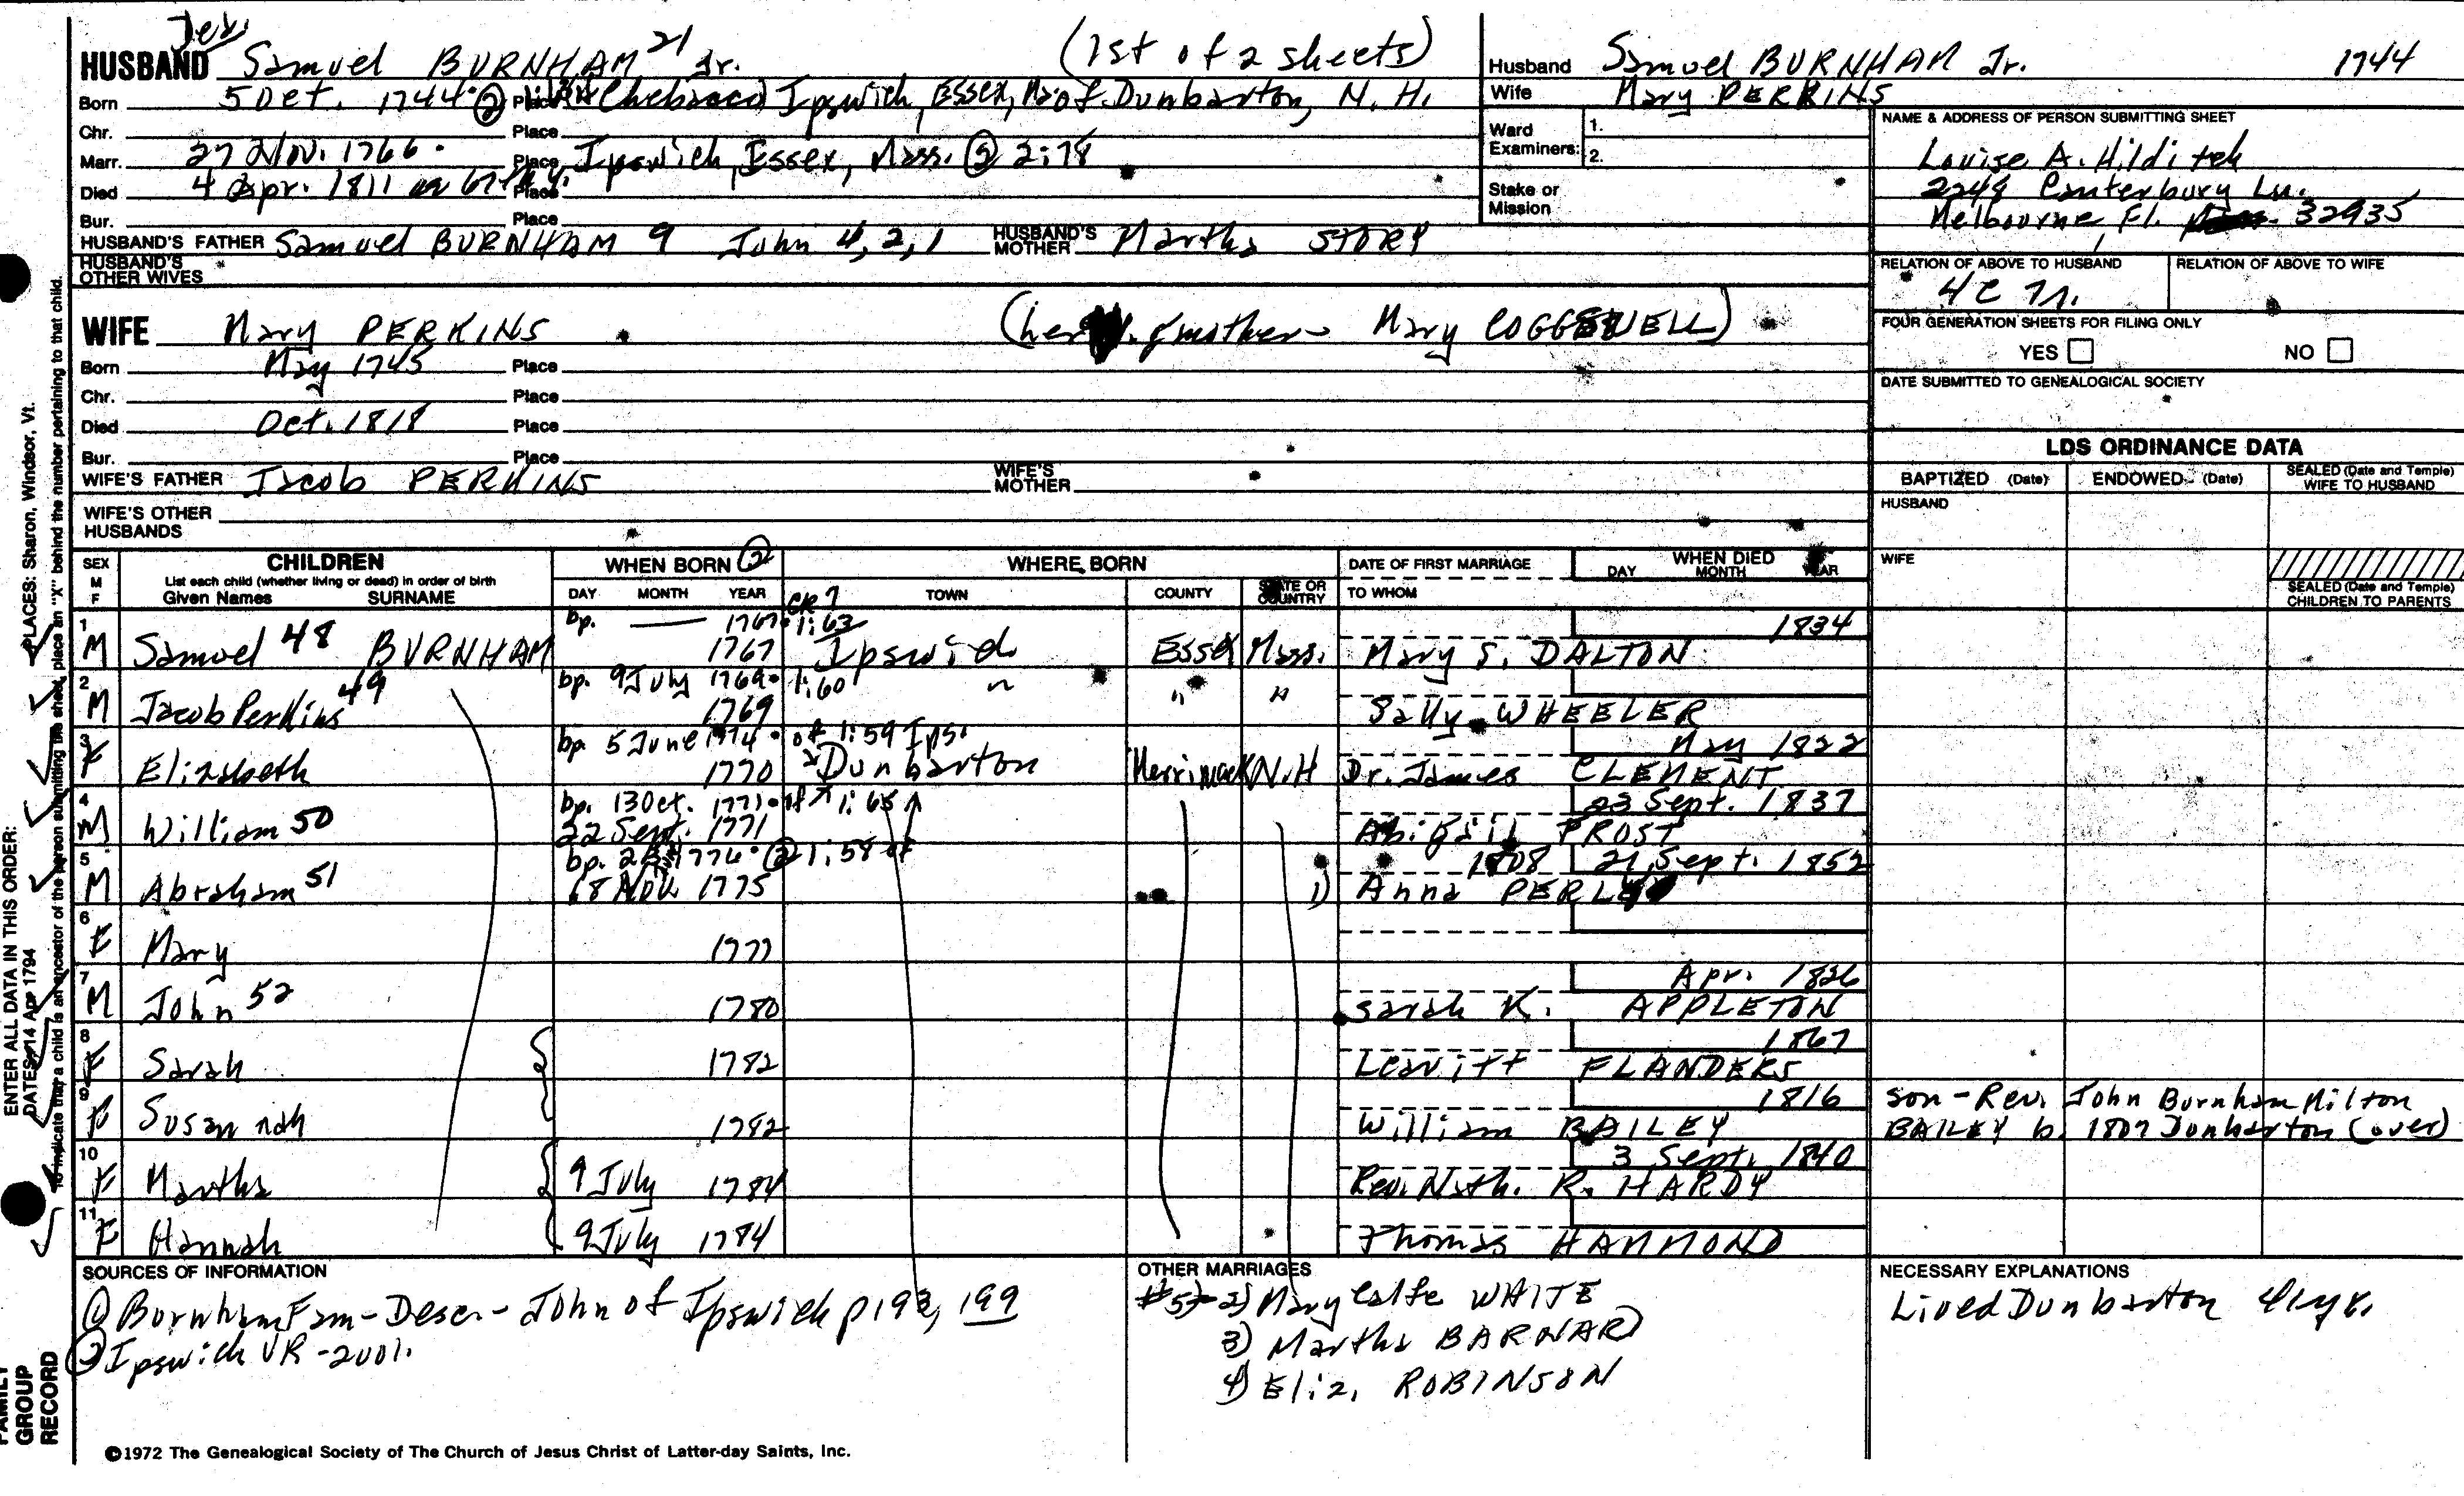 Dea.
HUSBAND Samuel BURNHAM 21 Jr. (1st of 2 sheets)
Born 5 Oct. 1744 ② Place Chebacco, Ipswich, Essex, Ma of Dunbarton, N. H.
Chr. Place
Marr. 27 Nov. 1766. Place Ipswich, Essex, Mass. ② 2:78
Died 4 Apr. 1811 Place
Bur. Place
HUSBAND'S FATHER Samuel BURNHAM 9 John 4, 2, 1 HUSBAND'S MOTHER Martha STORY
HUSBAND'S OTHER WIVES
WIFE Mary PERKINS (her gmother - Mary COGGSWELL)
Born May 1745 Place
Chr. Place
Died Oct. 1818 Place
Bur. Place
WIFE'S FATHER Jacob PERKINS WIFE'S MOTHER
WIFE'S OTHER HUSBANDS
Husband Samuel BURNHAM Jr. 1744
Wife Mary PERKINS
Ward Examiners: 1.
2.
Stake or Mission
NAME & ADDRESS OF PERSON SUBMITTING SHEET
Louise A. Hilditch
2248 Canterbury Ln.
Melbourne, Fl. 32935
RELATION OF ABOVE TO HUSBAND RELATION OF ABOVE TO WIFE
4C 7r.
FOUR GENERATION SHEETS FOR FILING ONLY
YES NO
DATE SUBMITTED TO GENEALOGICAL SOCIETY
LDS ORDINANCE DATA
BAPTIZED (Date) ENDOWED (Date) SEALED (Date and Temple) WIFE TO HUSBAND
HUSBAND
WIFE
SEALED (Date and Temple) CHILDREN TO PARENTS
SEX M F CHILDREN List each child (whether living or dead) in order of birth Given Names SURNAME
WHEN BORN ② DAY MONTH YEAR
WHERE BORN TOWN COUNTY STATE OR COUNTRY
DATE OF FIRST MARRIAGE TO WHOM
WHEN DIED DAY MONTH YEAR
CR 7
bp. — 1767. 1:63 1834
1 M Samuel 48 BURNHAM 1767 Ipswich Essex Mass. Mary S. DALTON
bp. 9 July 1769. 1:60
2 M Jacob Perkins 49 1769 " " " Sally WHEELER
bp. 5 June 1774. of 1:59 Ips. May 1822
3 F Elizabeth 1770 Dunbarton Merrimack N.H Dr. James CLEMENT
bp. 13 Oct. 1771. 1:65 23 Sept. 1837
4 M William 50 22 Sept. 1771 Abigail FROST
bp. 1776. ② 1:58 of 1808 21 Sept. 1852
5 M Abraham 51 18 Nov. 1775 1) Anna PERLEY
6 F Mary 1777
Apr. 1826
7 M John 52 1780 Sarah K. APPLETON
1867
8 F Sarah 1782 Leavitt FLANDERS
1816 son - Rev. John Burnham Milton
9 F Susannah 1782 William BAILEY BAILEY b. 1807 Dunbarton (over)
3 Sept. 1840
10 F Martha 9 July 1784 Rev. Nath. R. HARDY
11 F Hannah 9 July 1784 Thomas HAMMOND
SOURCES OF INFORMATION
① Burnham Fam - Desc - John of Ipswich p 193, 199
② Ipswich VR - 2vol.
OTHER MARRIAGES
#5 - 2) Mary Calfe WHITE
3) Martha BARNARD
4) Eliz. ROBINSON
NECESSARY EXPLANATIONS
Lived Dunbarton 41 yr.
©1972 The Genealogical Society of The Church of Jesus Christ of Latter-day Saints, Inc.
ENTER ALL DATA IN THIS ORDER:
DATES: 14 Apr 1794
PLACES: Sharon, Windsor, Vt.
To indicate that a child is an ancestor of the person submitting the sheet, place an "X" behind the number pertaining to that child.
FAMILY GROUP RECORD